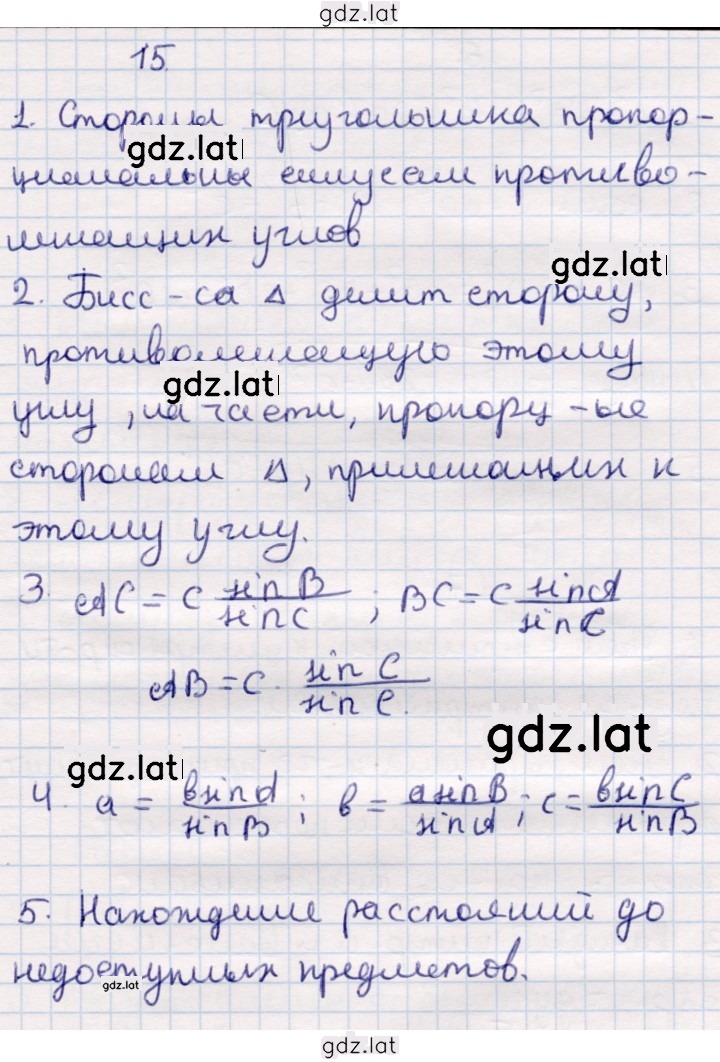 gdz.lat
15.
1. Стороны треугольника пропор-
gdz.lat
циональны синусам противо-
лежащих углов
gdz.lat
2. Бисс-са Δ делит сторону,
противолежащую этому
gdz.lat
углу, на части, пропорц-ые
сторонам Δ, прилежащих к
этому углу.
3 AC = C sin B / sin C ; BC = C sin A / sin C
AB = C · sin C / sin C.
gdz.lat
gdz.lat
4. a = b sin A / sin B ; b = a sin B / sin A ; c = b sin C / sin B
5. Нахождение расстояний до
недоступных предметов.
gdz.lat
gdz.lat